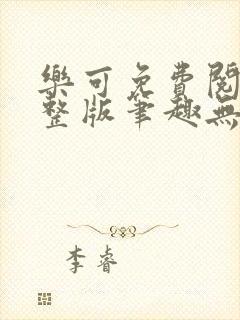 樂可免費閱
整版筆趣無
李睿